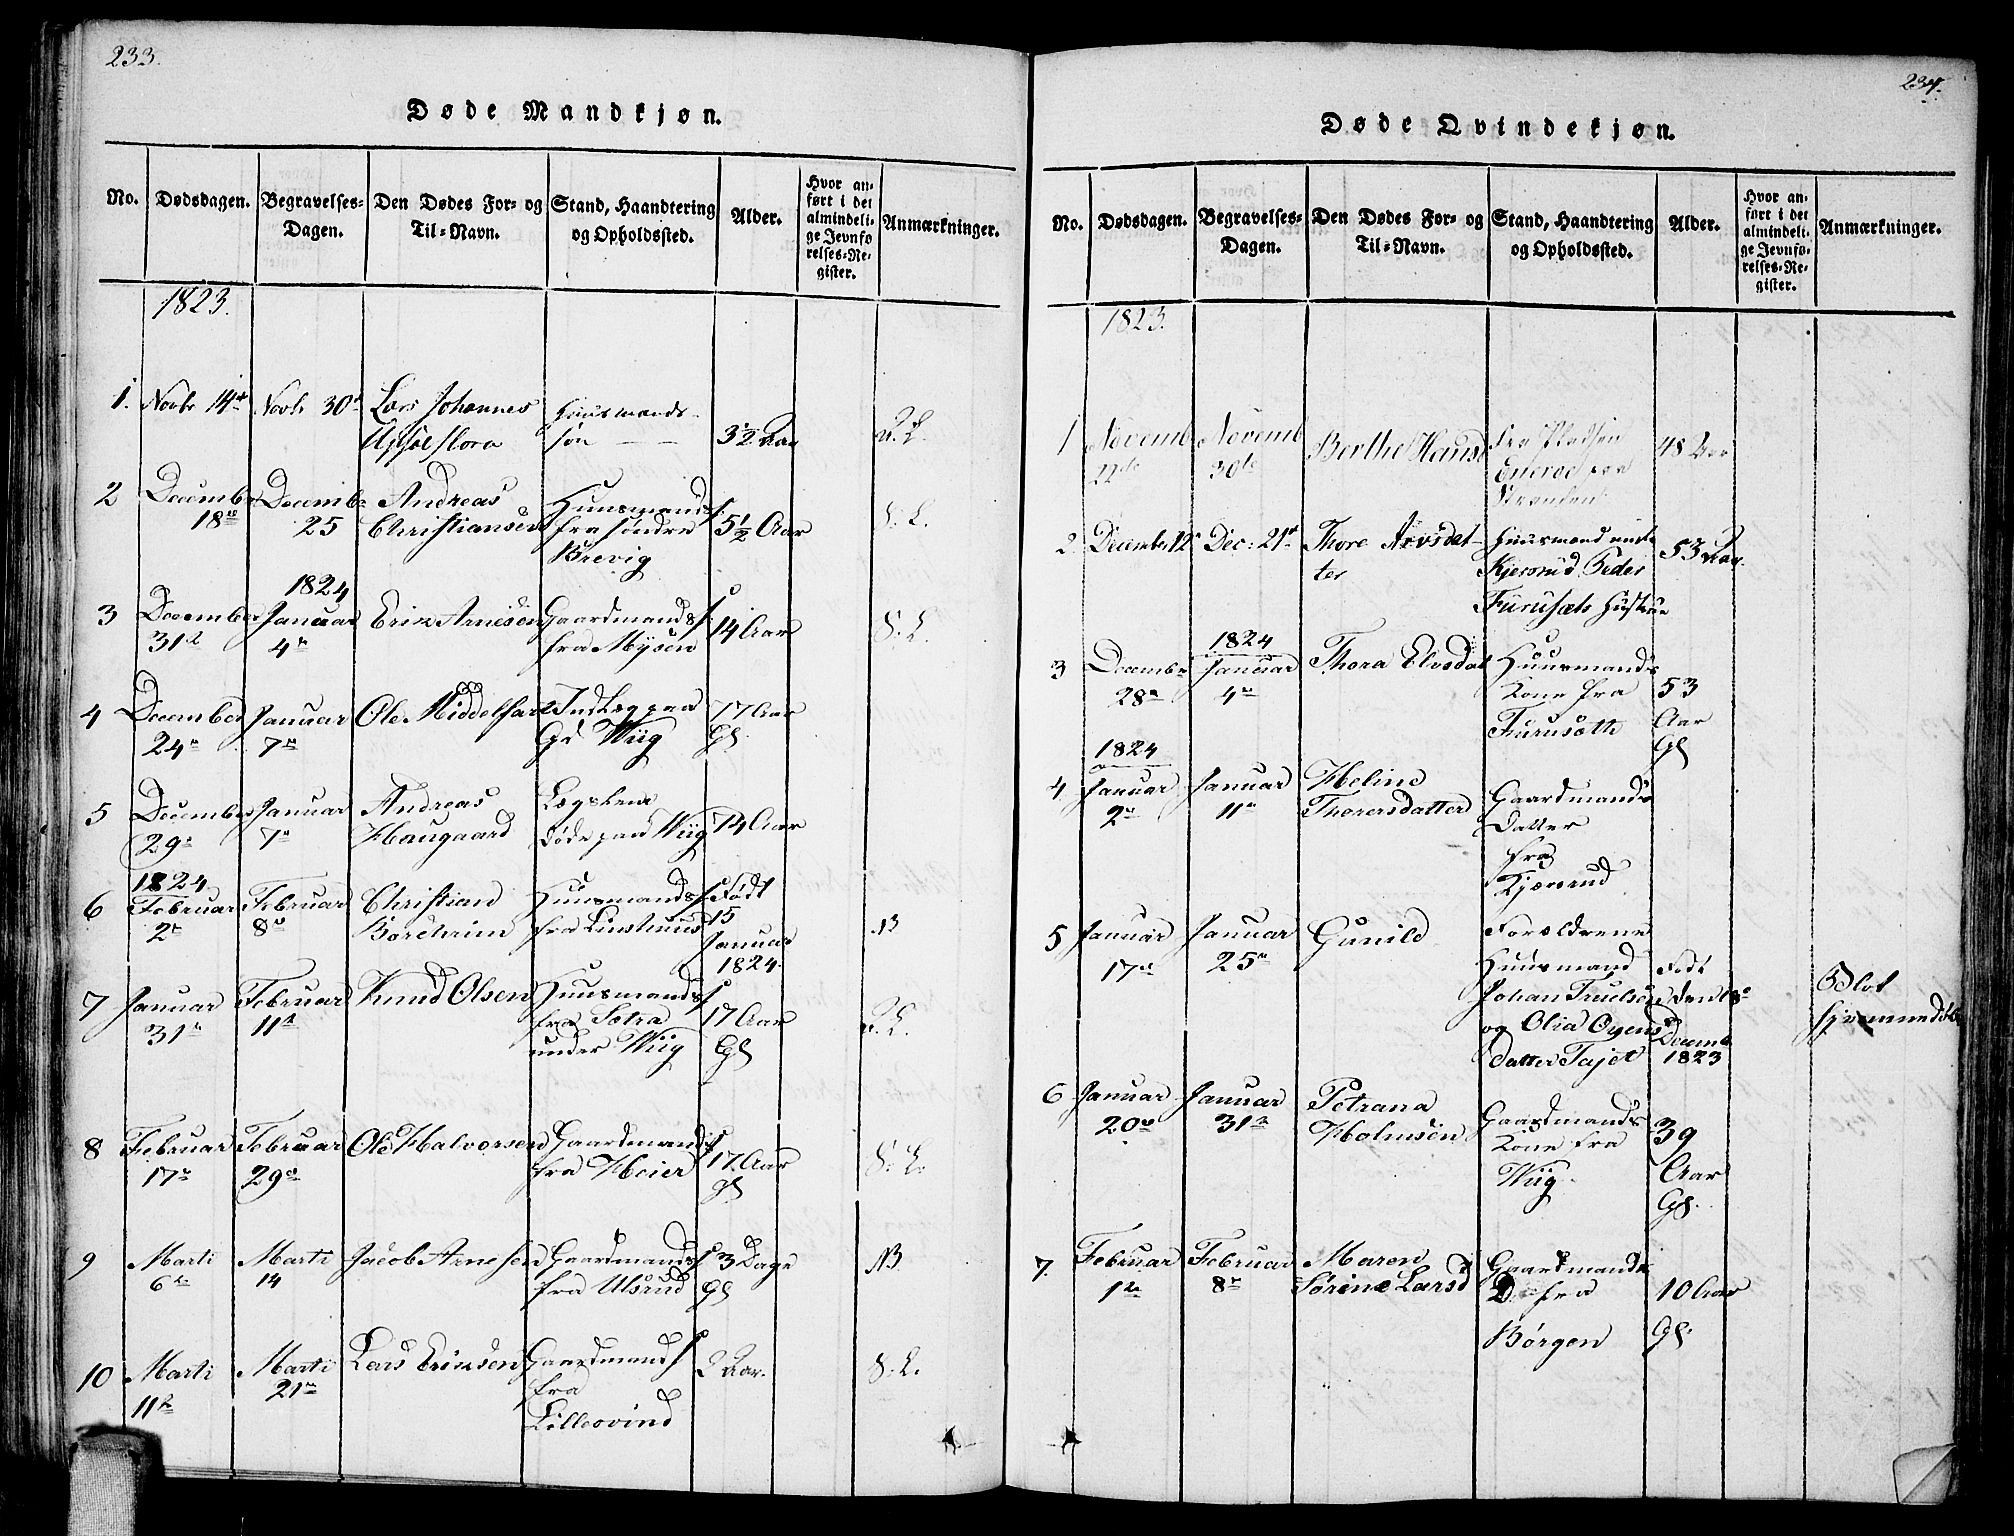 233.
Døde Mandkjøn.
No. Dødsdagen. Begravelses-Dagen. Den Dødes For- og Til-Navn. Stand, Haandtering og Opholdssted. Alder. Hvor anført i det almindelige Jevnførelses-Register. Anmærkninger.
1823.
1. Novbr 14de Novbr 30te Lars Johannes Huusmands
søn 3½ Aar
2 December Decembr Andreas Huusmands S.
18de 25 Christiansen fra søndre 5½ Aar S. L.
Brevig
1824
3 December Januar Erik Arnesen Gaardmands S. 14 Aar S. L.
31te 4de fra Mysen
4 December Januar Ole Middelfart Indlæg paa 77 Aar
24de 7de Gd Wiig Gl
5 December Januar Andreas Lægslem
29de 7de Haugaard døde paa Wiig 74 Aar
1824
6 Februar Februar Christian Huusmands S Født
2de 8de fra 15 NB
Januar
1824.
7 Januar Februar Knud Olsen Huusmands S
31te 11te fra Sætra 17 Aar
under Wiig Gl
8 Februar Februar Ole Halvorsen Gaardmands S
17de 29de fra Heier 17 Aar S. L.
gl
9 Marti Marti Jacob Arnesen Gaardmands S 3 Dage NB
6te 14 fra Ulsrud Gl
10 Marti Marti Lars Eriksen Gaardmands S 2 Aar. S. L.
11te 21de fra
Lilleovind
234.
Døde Qvindekjøn.
No. Dødsdagen. Begravelses-Dagen. Den Dødes For- og Til-Navn. Stand, Haandtering og Opholdssted. Alder. Hvor anført i det almindelige Jevnførelses-Register. Anmærkninger.
1823.
1 Novemb Novemb Berthe Hansd fra Pladsen 48 Aar
22de 30te Enerød paa
2. December 12 Dec: 21de Thore Arvsdat- Huusmand under 53 Aar
ter Kjersrud Peder
Furusæts Hustrue
1824
3 Decembr Januar Thora Elvsdat Huusmands
28de 4de Kone fra 53
Furusæth Aar
Gl
1824
4 Januar Januar Heline Gaardmands
2de 11te Thorersdatter Datter
fra
Kjærsrud
5 Januar Januar Gunild Forældrene
17de 25de Huusmand Født
Johan Truelsen den 18de Blot
og Olia Oyens Decemb. hjemmedøbt
datter Tajet 1823
6 Januar Januar Petrana Gaardmands
20de 31te Holmsen Kone fra 39
Wiig Aar
Gl.
7. Februar Februar Maren Gaardmands
1te 8de Sørine Larsd D. fra 10 Aar
Børgen Gl.